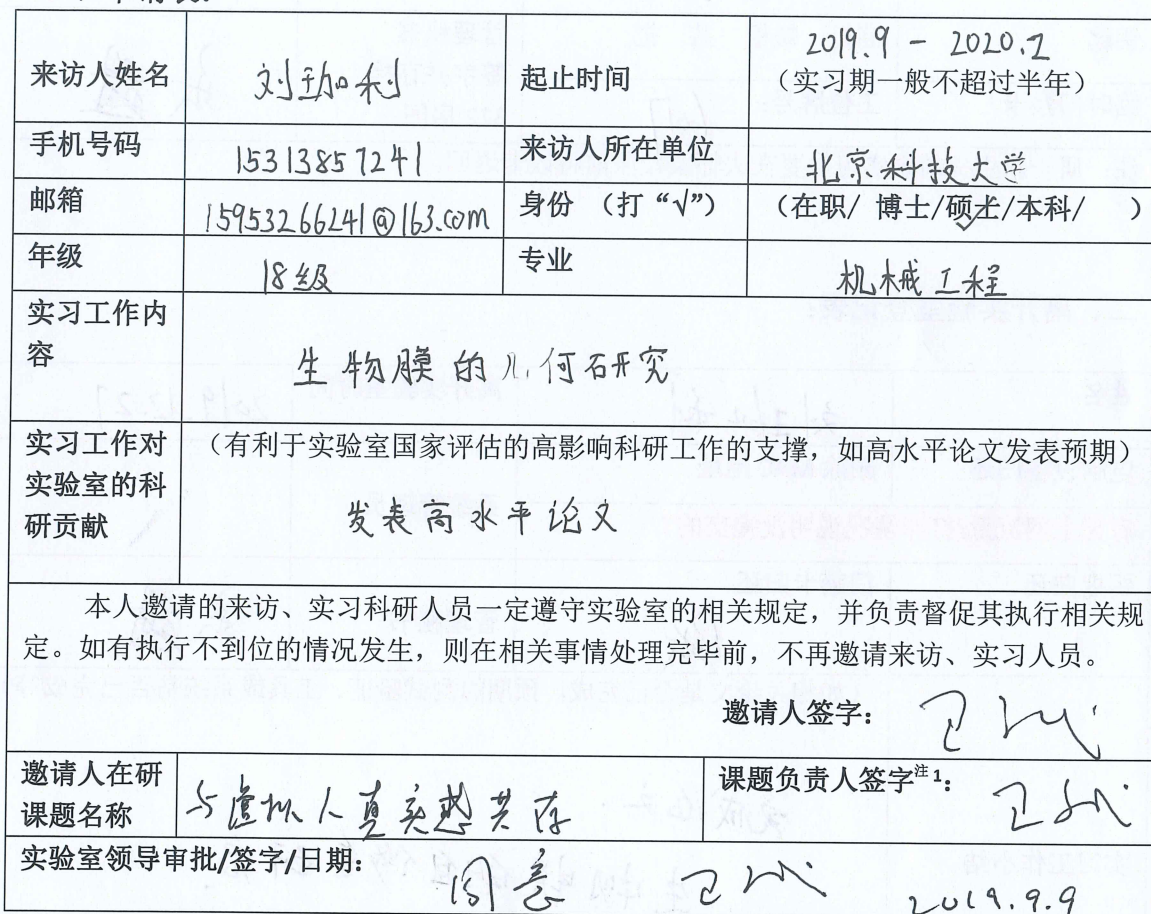 来访人姓名
刘劲利
起止时间
2019.9 - 2020.2
（实习期一般不超过半年）
手机号码
15313857241
来访人所在单位
北京科技大学
邮箱
15953266241@163.com
身份 （打“√”）
（在职/ 博士/硕士/本科/ ）
年级
18级
专业
机械工程
实习工作内
容
生物膜的几何研究
实习工作对
实验室的科
研贡献
（有利于实验室国家评估的高影响科研工作的支撑，如高水平论文发表预期）
发表高水平论文
本人邀请的来访、实习科研人员一定遵守实验室的相关规定，并负责督促其执行相关规
定。如有执行不到位的情况发生，则在相关事情处理完毕前，不再邀请来访、实习人员。
邀请人签字：
邀请人在研
课题名称
与虚拟人真实感共存
课题负责人签字注1：
实验室领导审批/签字/日期：
同意
2019.9.9